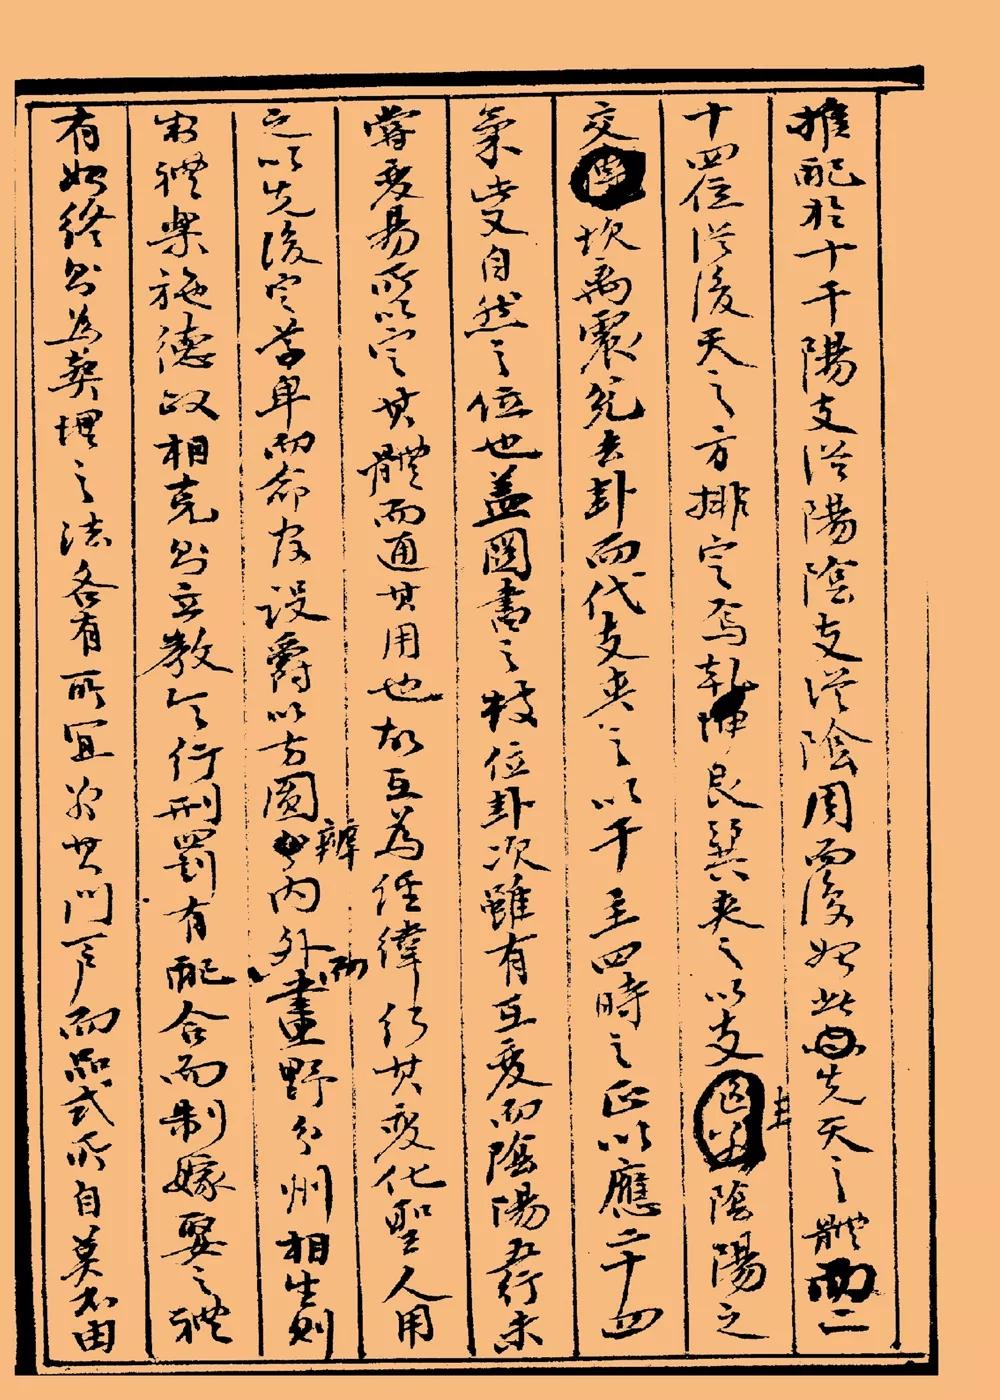 推配於十干陽支從陽陰支從陰周而復始此先天之體而二
十四位從後天之方排定焉乾坤艮巽夾之以支主陰陽之
交坎离震兑去卦而代支夾之以干主四時之正以應二十四
氣皆自然之位也盖圖書之枝位卦次雖有互變而陰陽五行未
嘗變易所以定其體而通其用也故互為經緯行其變化聖人用
之以先後定尊卑而命官設爵以方圓辨內外而畫野分州相生則
制禮樂施德政相克則立教令行刑罰有配合而制嫁娶之禮
有始終則為葬埋之法各有所宜分其門户而品式所自莫不由